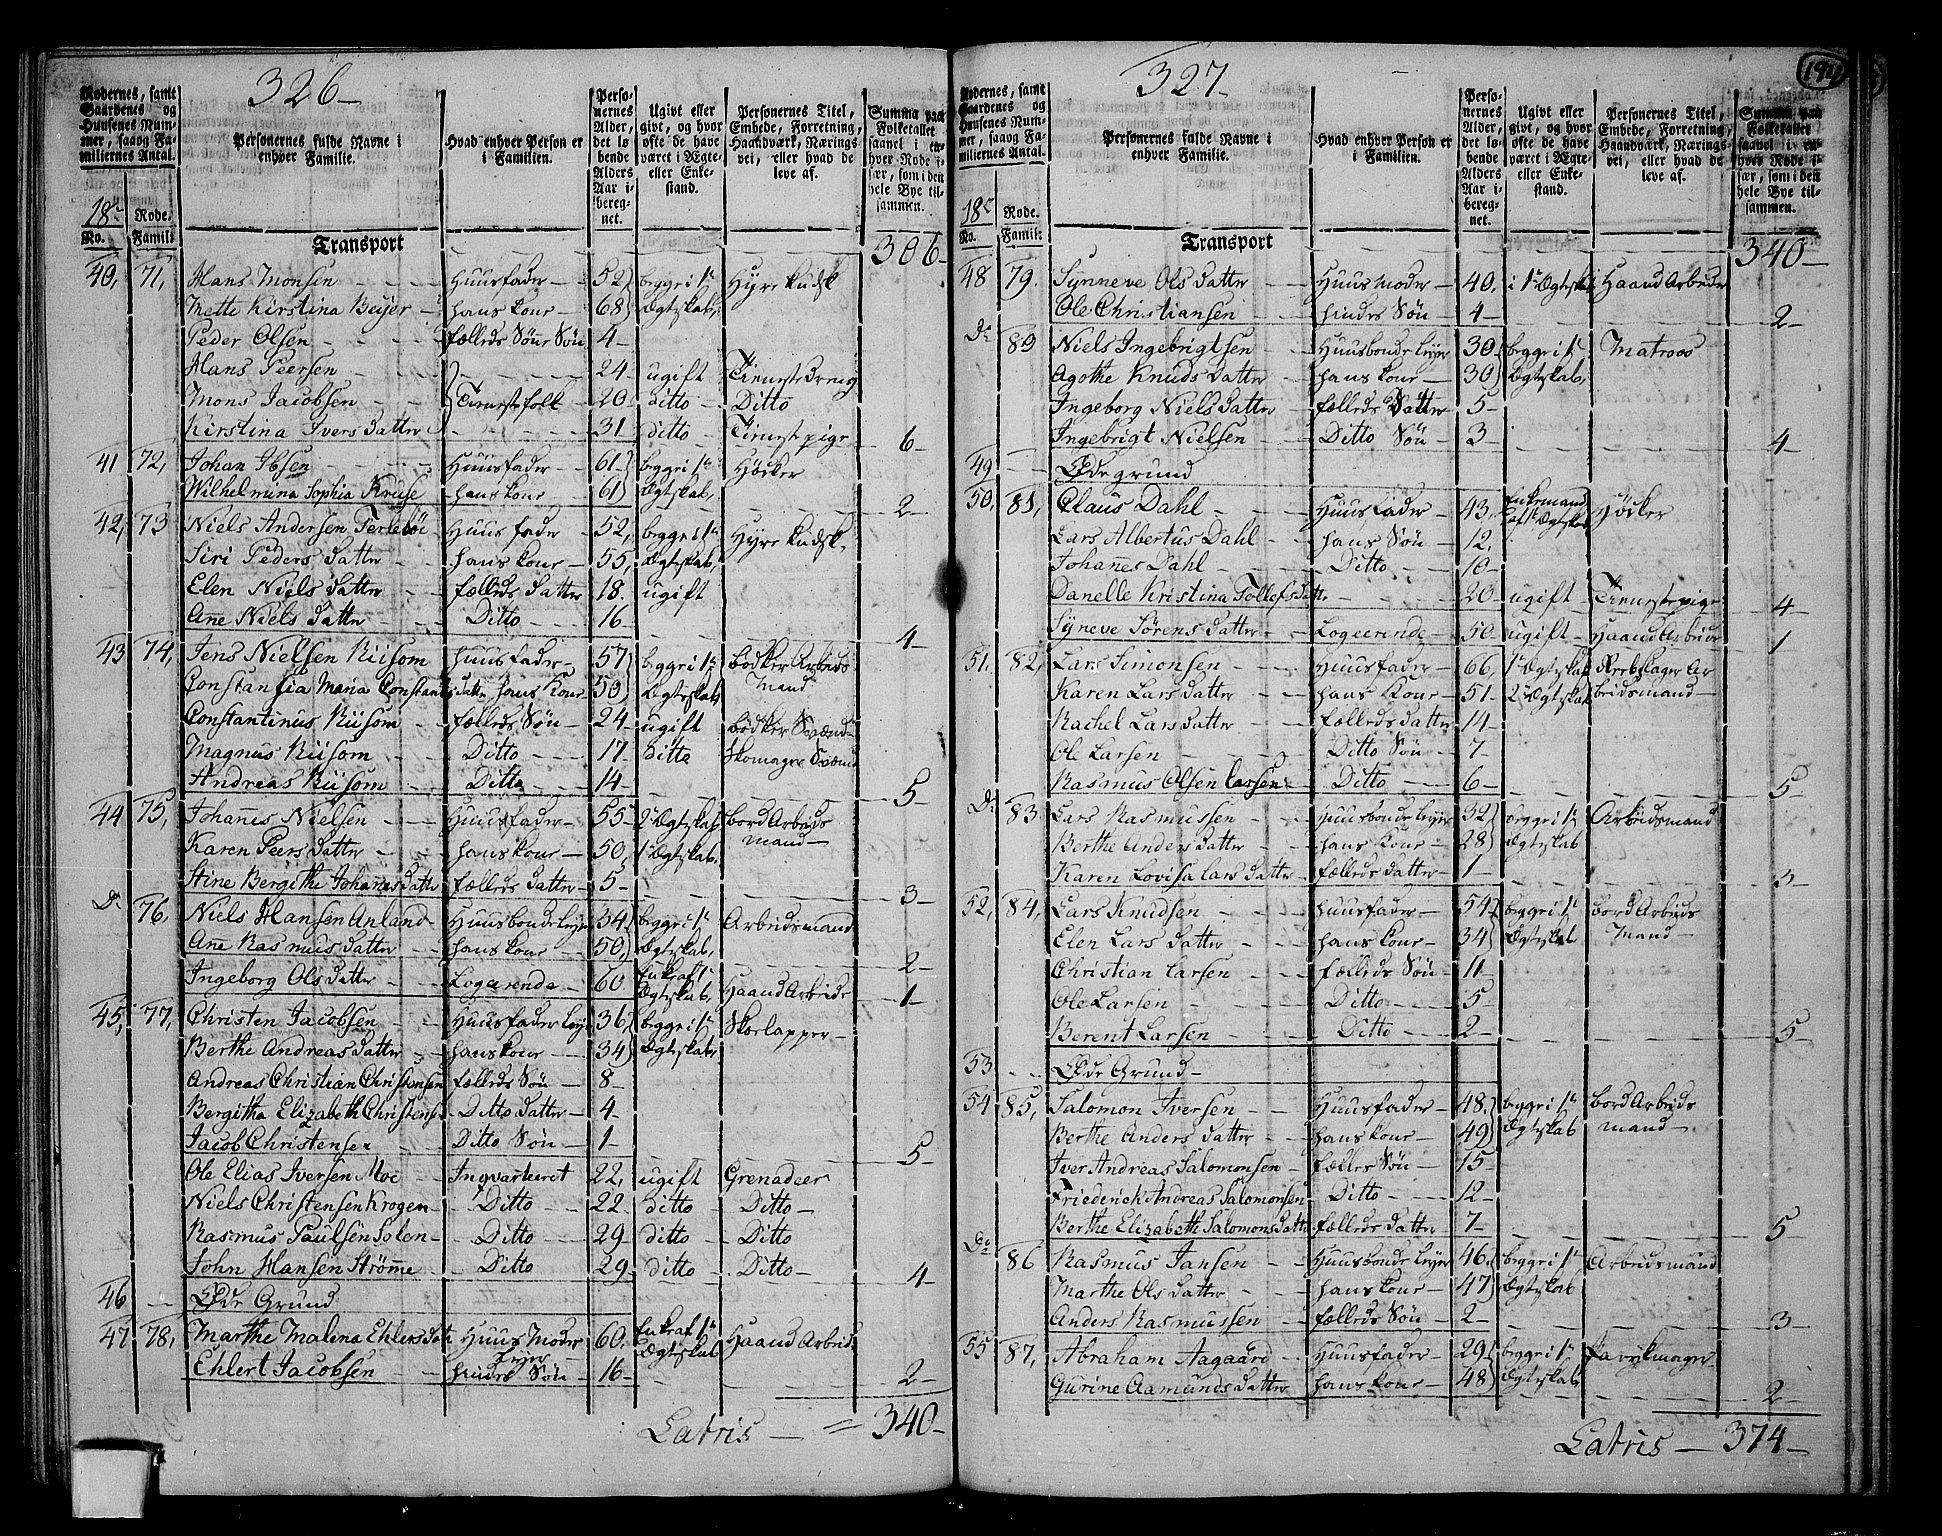 326-
Rodernes, samt Gaardenes og Huusenes Nummer, saavog Familiernes Antal.
Personernes fulde Navne i enhver Familie.
Hvad enhver Person er i Familien.
Personernes Alder, det løbende Alders Aar iberegnet.
Ugivt eller givt, og hvor ofte de have været i Ægte- eller Enkestand.
Personernes Titel, Embede, Forretning, Haandværk, Næringsvei, eller hvad de leve af.
Summa paa Folketallet saavel i enhver Rode især, som i den hele Bye tilsammen.
18de Rode.
No. Famili:
Transport 306-
40, 71, Hans Monsen Huusfader 52 begge i 1te Hyrekudsk
Mette Kirstina Beijer hans kone 68 Ægteskab,
Peder Olsen fælleds Søns Søn 4-
Hans Peersen 24 ugift Tienestedreng
Mons Jacobsen Tienestefolk 20 ditto Ditto
Kirstina Ivers datter 31 ditto Tienestepige 6-
41 72, Johan Ibsen Huusfader 61 begge i 1te Høcker
Wilhelmina Sophia Kruse hans kone 61 Ægteskab, 2-
42, 73 Niels Andersen Huus fader 52, begge i 1te Hyrekudsk
Siri Peders datter hans kone 55, Ægteskab,
Elen Niels datter fælleds datter 18. ugift
Ane Niels datter Ditto 16 4-
43 74, Jens Nielsen Riisom Huusfader 57 begge i 1te bødker Arbeids
Constantia Maria Constantinsdattr hans Kone 50 Ægteskab, Mand
Constantinus Riisom fælleds Søn 24 ugift bødker Svænd
Magnus Riisom Ditto 17 ditto Skomager Svænd
Andreas Riisom Ditto 14- 5-
44 75, Johanes Nielsen Huusfader 55 2de Ægteskab bord Arbeids
Karen Peers datter hans kone 50, 1te Ægteskab, mand
Stine Bergithe Johanes datter fælleds datter 5- 3-
Do 76, Niels Hansen Anland Huusbonde leyer 34 begge i 1te Arbeidsmand
Ane Rasmus datter hans kone 50 Ægteskab, 2-
Ingeborg Ols datter Logerende 60 Enke af 1te Ægteskab, Haand Arbeide 1-
45, 77, Christen Jacobsen Huusfader leyer 36, begge i 1te Skoelapper
Berthe Andreas datter hans kone 34 Ægteskab
Andreas Christian Christensen fælleds Søn 8-
Bergitha Elizabeth Christens Ditto datter 4-
Jacob Christensen Ditto Søn 1- 5-
Ole Elias Iversen Moe Inqvarteeret 22, ugift Grenadeer
Niels Christensen Krogen Ditto 22 ditto Ditto
Rasmus Paulsen Solen Ditto 29 ditto Ditto
John Hansen Strømme Ditto 29- ditto Ditto 4-
46 Øde Grund
47 78, Marthe Malena Ehlers datt Huus Moder leyer 60. Enke af 1te Ægteskab Haand Arbeid
Ehlert Jacobsen hindes Søn 16- 2-
Latris = 340-
194
327-
Rodernes, samt Gaardenes og Huusenes Nummer, saavog Familiernes Antal.
Personernes fulde Navne i enhver Familie.
Hvad enhver Person er i Familien.
Personernes Alder, det løbende Alders Aar iberegnet.
Ugivt eller givt, og hvor ofte de have været i Ægte- eller Enkestand.
Personernes Titel, Embede, Forretning, Haandværk, Næringsvei, eller hvad de leve af.
Summa paa Folketallet saavel i enhver Rode især, som i den hele Bye tilsammen.
18de Rode.
No. Famili:
Transport 340-
48 79. Synneve Ols datter Huusmoder 40, i 1te Ægteskab Haand Arbeide
Ole Christiansen hindes Søn 4- 2-
Do 80 Niels Ingebrigtsen Huusbonde leyer 30 begge i 1te Matroos
Agothe Knuds datter hans kone 30 Ægteskab,
Ingeborg Niels datter fælleds datter 5-
Ingebrigt Nielsen Ditto Søn 3- 4-
49 Øde grund
50, 81, Claus Dahl Huusfader 43. Enkemand af 1te Ægteskab Høcker
Lars Albertus Dahl hans Søn 12.
Johannes Dahl Ditto 10-
Danelle Kristina Tollefsdatt 20 ugift Tienestepige 4-
Syneve Sørens datter Logeerende 50 ugift Haand Arbeide 1
51. 82, Lars Simonsen Huusfader 66, 1te Ægteskab Reebslager Ar
Karen Lars datter hans Kone 51. 2de Ægteskab beidsmand
Rachel Lars datter fælleds datter 14-
Ole Larsen Ditto Søn 7-
Rasmus Olsen Larsen Ditto 6- 5-
Do 83 Lars Rasmussen Huusbonde leyer 32 begge i 1te Arbeidsmand
Berthe Anders datter hans Kone 28 Ægteskab
Karen Lovisa Lars datter fælleds datter 1- 3-
52, 84, Lars Knudsen Huusfader 54 begge i 1te bord Arbeids
Elen Lars datter hans kone 34 Ægteskab Mand
Christian Larsen fælleds Søn 11
Ole Larsen Ditto 5-
Berent Larsen Ditto 2- 5-
53 Øde Grund
54 85, Salomon Iversen Huusfader 48, begge i 1te bord Arbeids
Berthe Anders datter hans kone 42 Ægteskab mand
Iver Andreas Salomonsen fælles Søn 15-
Friederick Andreas Salomonsen Ditto 12-
Berthe Elizabeth Salomonsdattr fælleds datter 7- 5-
Do 86 Rasmus Jansen Huusbonde leyer 46, begge i 1te Arbeidsmand
Marthe Ols datter hans kone 47 Ægteskab
Anders Rasmussen fælleds Søn 2- 3-
55 87, Abraham Aagaard Huusfader 29 begge i 1te
Gurine Aamunds datter hans kone 48 Ægteskab 2-
Latris - 374-